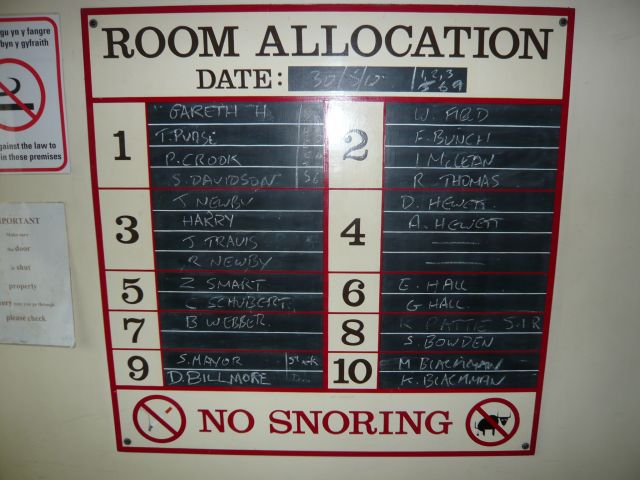 gu yn y fangre
byn y gyfraith
against the law to
in these premises
PORTANT
Make sure
the door
is shut
properly
every time you go through
please check
ROOM ALLOCATION
DATE: 30/5/12 1, 2, 3
5 6 9
1
GARETH H
T. PURSE
P. CROOK
S. DAVIDSON
2
W. FIELD
F. BUNCH
I MCLEAN
R. THOMAS
3
T NEWBY
HARRY
J TRAVIS
R NEWBY
4
D. HEWETT
A. HEWETT
5
Z SMART
C SCHUBERT
6
E. HALL
G HALL
7
B WEBBER
8
K PATTIE S.I.R
S. BOWDEN
9
S. MAYOR
D. BILLMORE
10
M BLACKMAN
K. BLACKMAN
NO SNORING